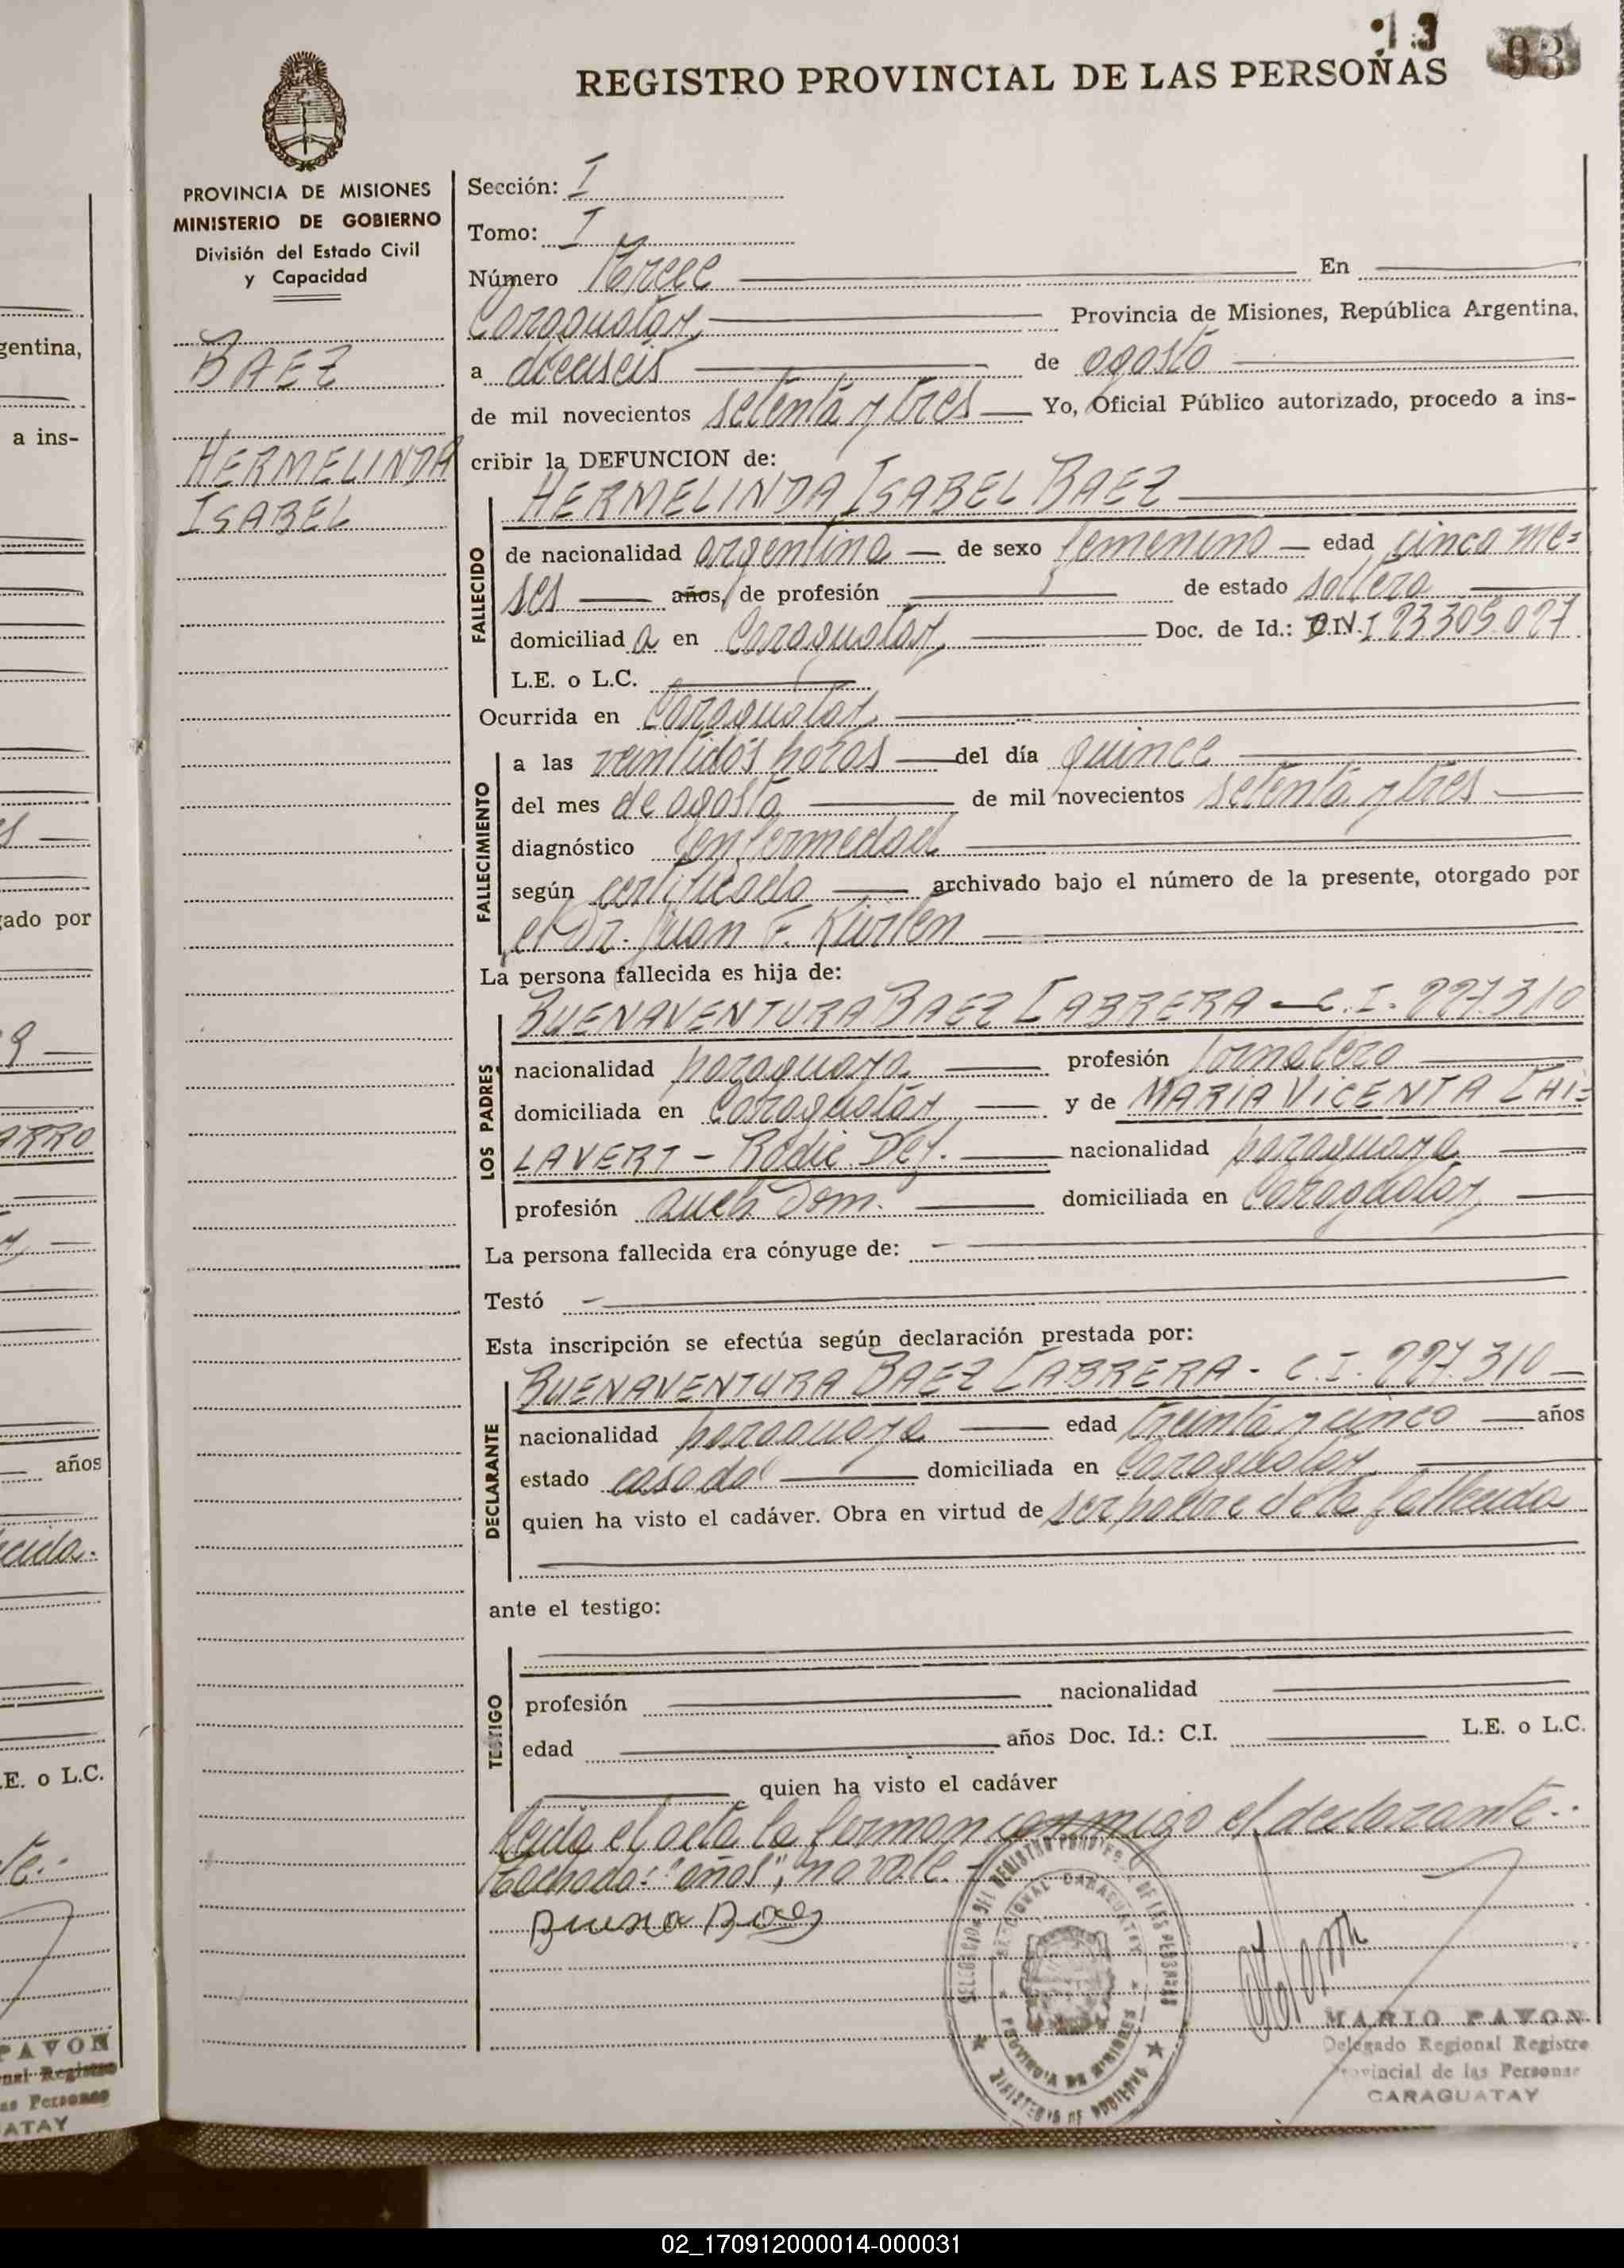 13 93
REGISTRO PROVINCIAL DE LAS PERSONAS
PROVINCIA DE MISIONES
MINISTERIO DE GOBIERNO
División del Estado Civil
y Capacidad
BAEZ
HERMELINDA
ISABEL
Sección: I
Tomo: I
Número trece En
Caraguatay Provincia de Misiones, República Argentina,
a dieciseis de agosto
de mil novecientos setenta y tres Yo, Oficial Público autorizado, procedo a ins-
cribir la DEFUNCION de:
HERMELINDA ISABEL BAEZ
FALLECIDO
de nacionalidad argentina de sexo femenino edad cinco me=
ses años, de profesión de estado soltera
domiciliad a en Caraguatay Doc. de Id.: D.N.I 23305.027
L.E. o L.C.
Ocurrida en Caraguatay
FALLECIMIENTO
a las veintidós horas del día quince
del mes de agosto de mil novecientos setenta y tres
diagnóstico enfermedad
según certificado archivado bajo el número de la presente, otorgado por
el Dr. Juan F. Kürten
La persona fallecida es hija de:
LOS PADRES
BUENAVENTURA BAEZ CABRERA - C.I. 227.310
nacionalidad paraguaya profesión jornalero
domiciliada en Caraguatay y de MARIA VICENTA CHI=
LAVERT - Radic. Def. nacionalidad paraguaya
profesión queh. Dom. domiciliada en Caraguatay
La persona fallecida era cónyuge de:
Testó
Esta inscripción se efectúa según declaración prestada por:
DECLARANTE
BUENAVENTURA BAEZ CABRERA - C.I. 227.310
nacionalidad paraguaya edad treinta y cinco años
estado casado domiciliada en Caraguatay
quien ha visto el cadáver. Obra en virtud de ser padre de la fallecida
ante el testigo:
TESTIGO
profesión nacionalidad
edad años Doc. Id.: C.I. L.E. o L.C.
quien ha visto el cadáver
Leída el acta la firman conmigo el declarante.-
Tachado: "años", no vale.-
MARIO PAVON
Delegado Regional Registro
Provincial de las Personas
CARAGUATAY
PROVINCIA DE MISIONES
MINISTERIO DE GOBIERNO
gentina,
a ins-
gado por
ARRO
años
cida.
E. o L.C.
te.-
PAVON
nal Registro
as Personas
ATAY
02_170912000014-000031